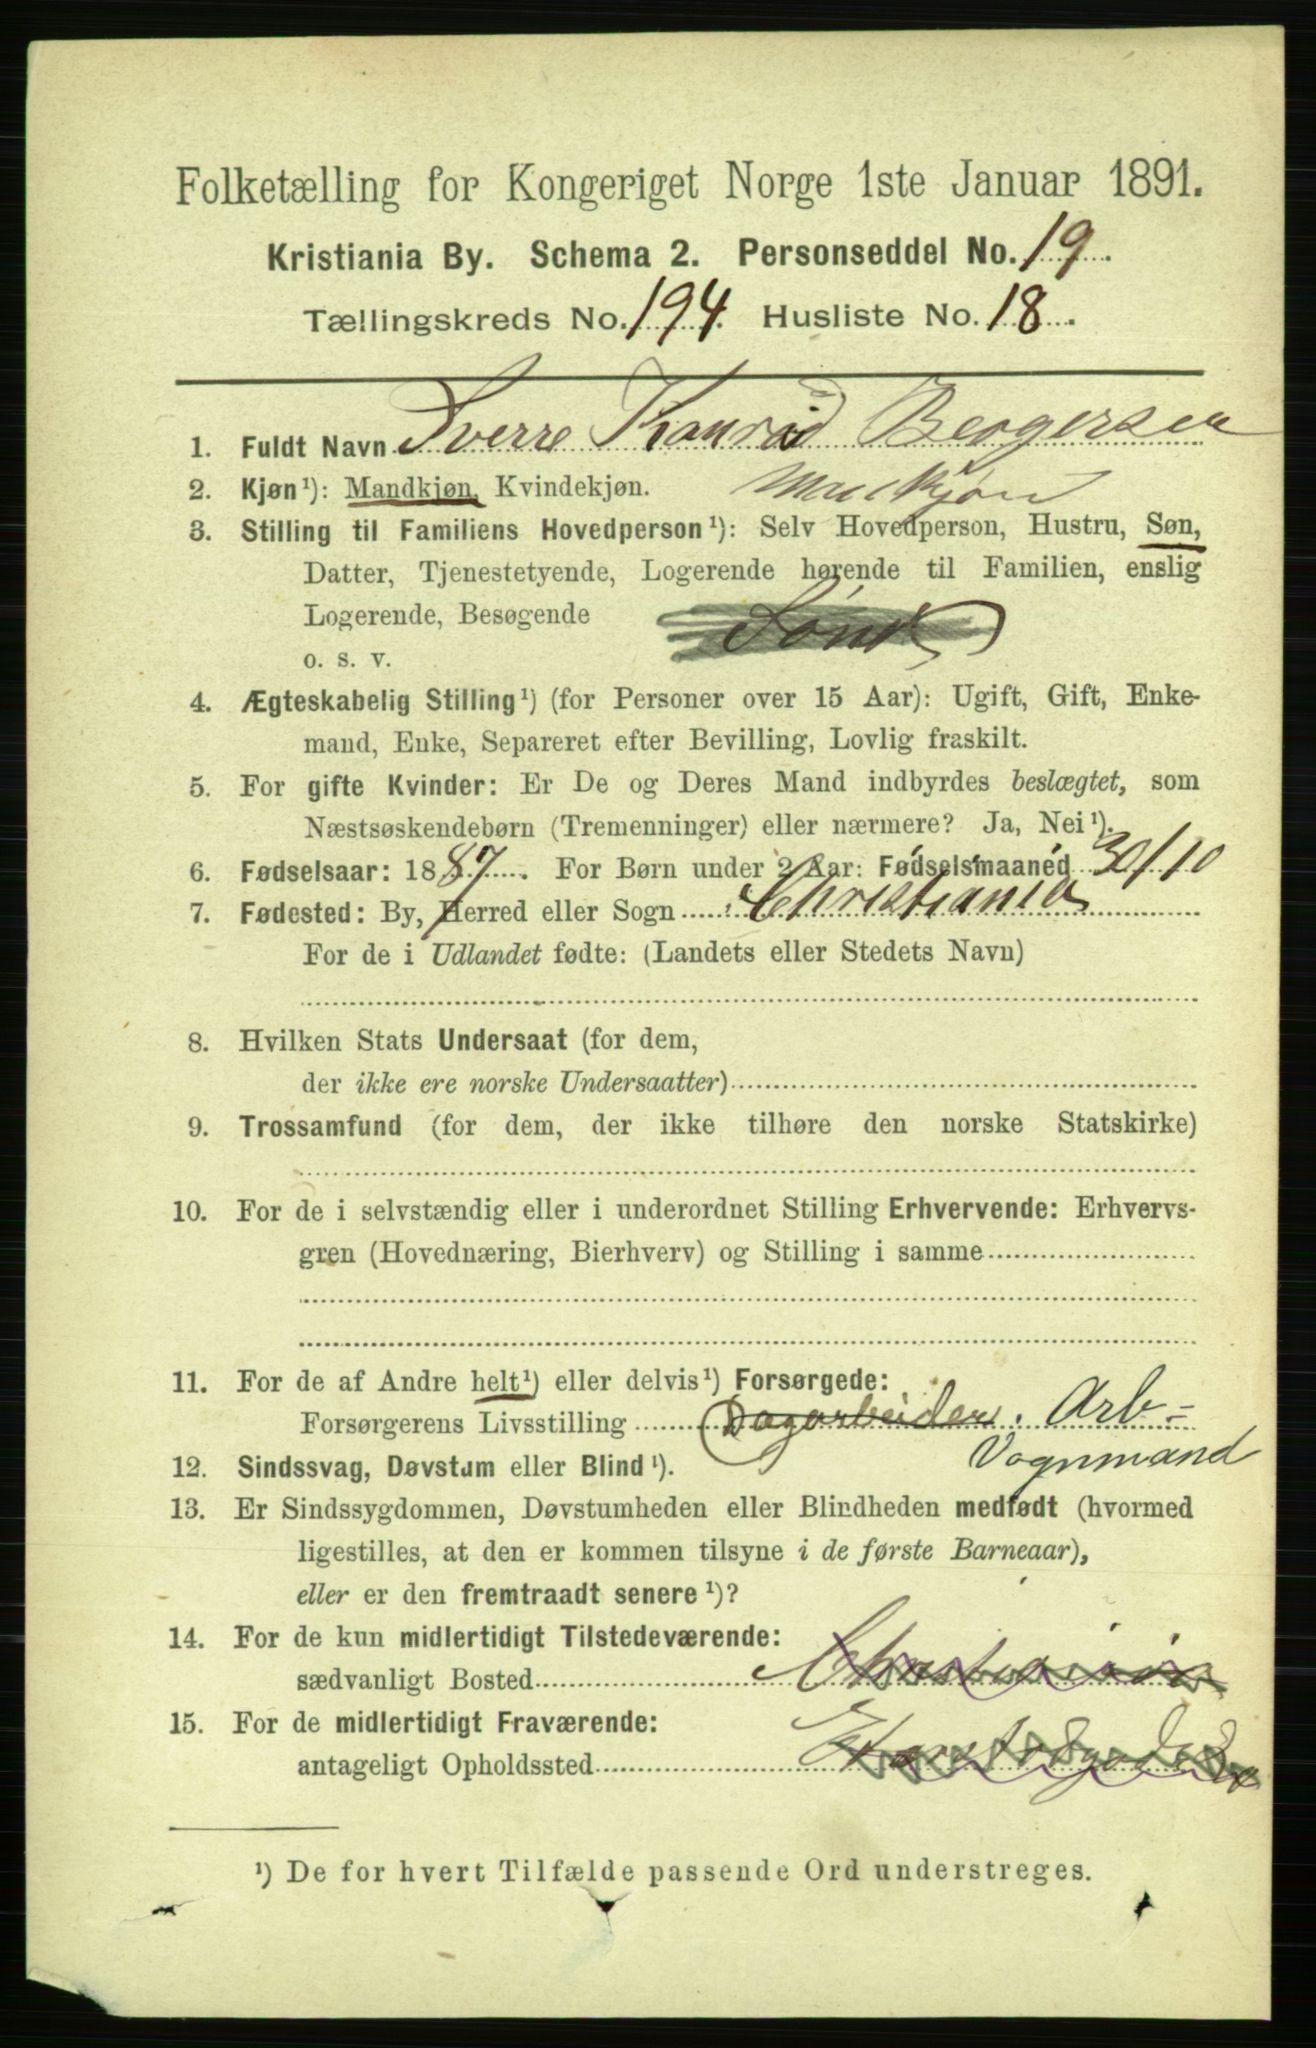 Folketælling for Kongeriget Norge 1ste Januar 1891.
Kristiania By. Schema 2. Personseddel No. 19.
Tællingskreds No. 194. Husliste No. 18.
1. Fuldt Navn Sverre Konrad Bergersen
2. Kjøn¹): Mandkjøn, Kvindekjøn. Mandkjøn
3. Stilling til Familiens Hovedperson¹): Selv Hovedperson, Hustru, Søn,
Datter, Tjenestetyende, Logerende hørende til Familien, enslig
Logerende, Besøgende
o. s. v.
4. Ægteskabelig Stilling¹) (for Personer over 15 Aar): Ugift, Gift, Enke-
mand, Enke, Separeret efter Bevilling, Lovlig fraskilt.
5. For gifte Kvinder: Er De og Deres Mand indbyrdes beslægtet, som
Næstsøskendebørn (Tremenninger) eller nærmere? Ja, Nei¹).
6. Fødselsaar: 1887. For Børn under 2 Aar: Fødselsmaaned 30/10
7. Fødested: By, Herred eller Sogn Christiania
For de i Udlandet fødte: (Landets eller Stedets Navn)
8. Hvilken Stats Undersaat (for dem,
der ikke ere norske Undersaatter)
9. Trossamfund (for dem, der ikke tilhøre den norske Statskirke)
10. For de i selvstændig eller i underordnet Stilling Erhvervende: Erhvervs-
gren (Hovednæring, Bierhverv) og Stilling i samme
11. For de af Andre helt¹) eller delvis¹) Forsørgede:
Forsørgerens Livsstilling Dagarbeider. Arb-
Vognmand
12. Sindssvag, Døvstum eller Blind¹).
13. Er Sindssygdommen, Døvstumheden eller Blindheden medfødt (hvormed
ligestilles, at den er kommen tilsyne i de første Barneaar),
eller er den fremtraadt senere¹)?
14. For de kun midlertidigt Tilstedeværende:
sædvanligt Bosted Christiania
15. For de midlertidigt Fraværende:
antageligt Opholdssted
¹) De for hvert Tilfælde passende Ord understreges.